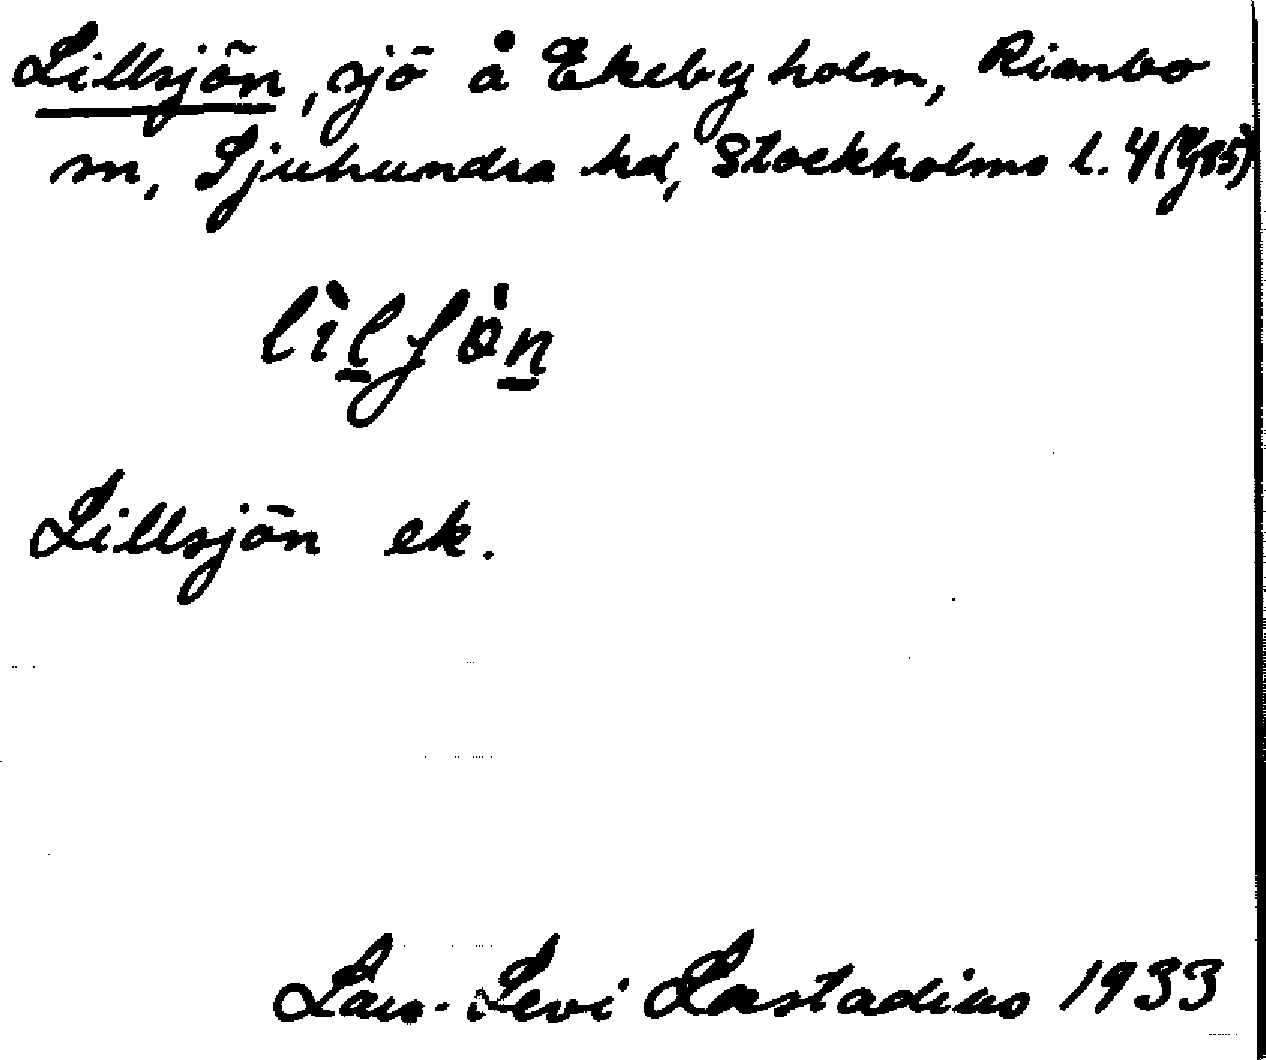 Lillsjön, sjö å Ekebyholm, Rimbo
sn, Sjuhundra hd, Stockholms l.
Lillsjön ek.
Lars-Levi Læstadius 1933